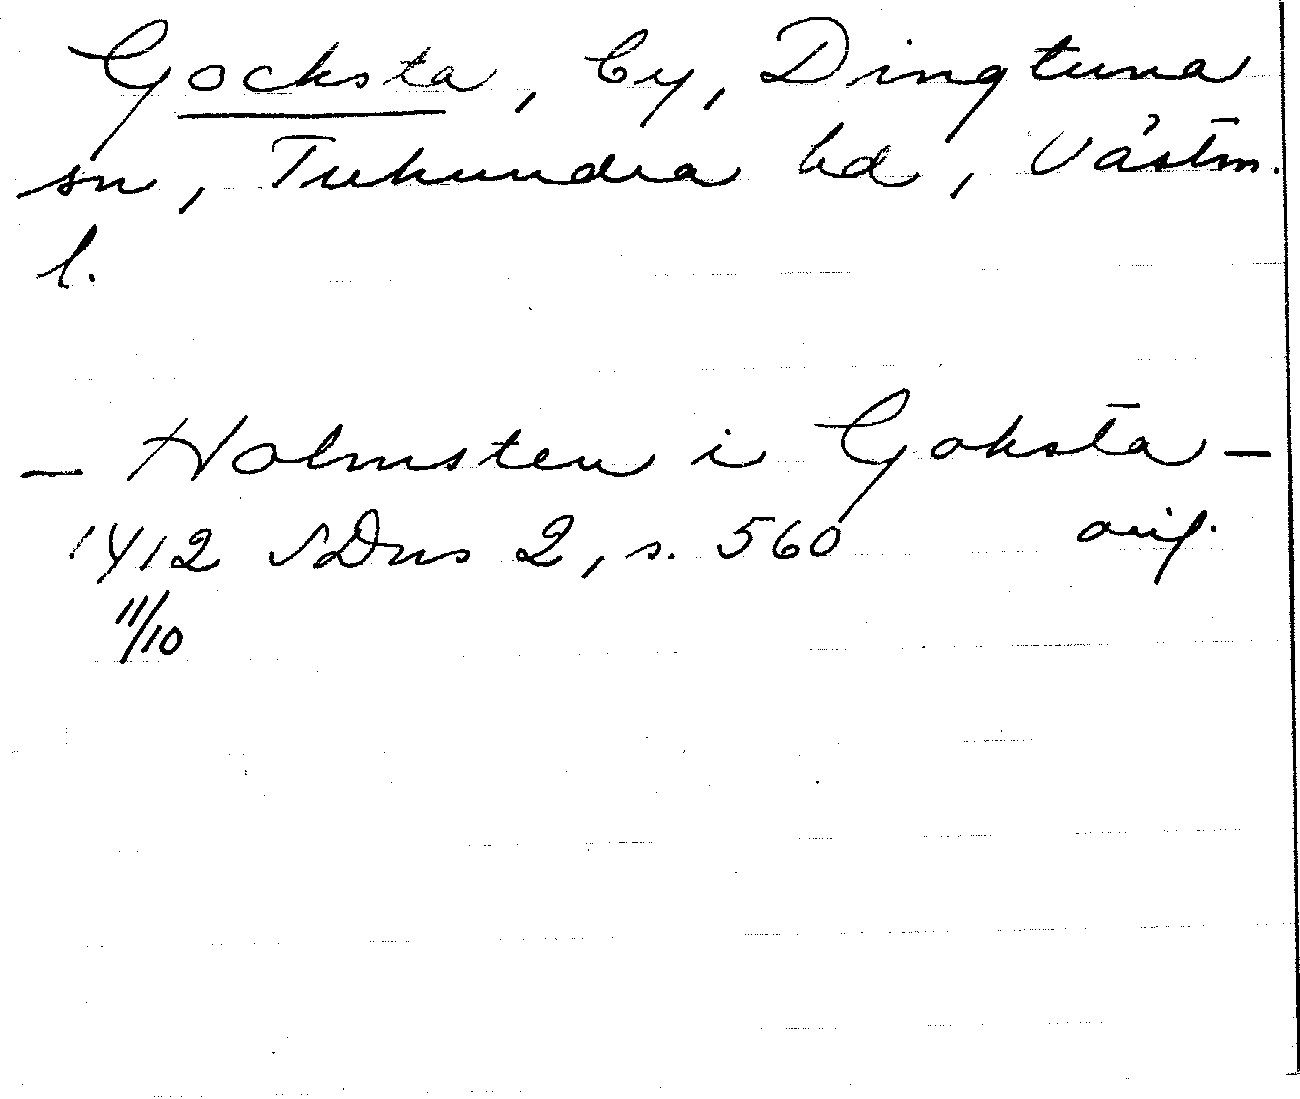 Gocksta, by, Dingtuna
sn, Tuhundra hd, Västm.
l.
- Holmsten i Goksta -
1412 SDns 2, s. 560 orig.
11/10